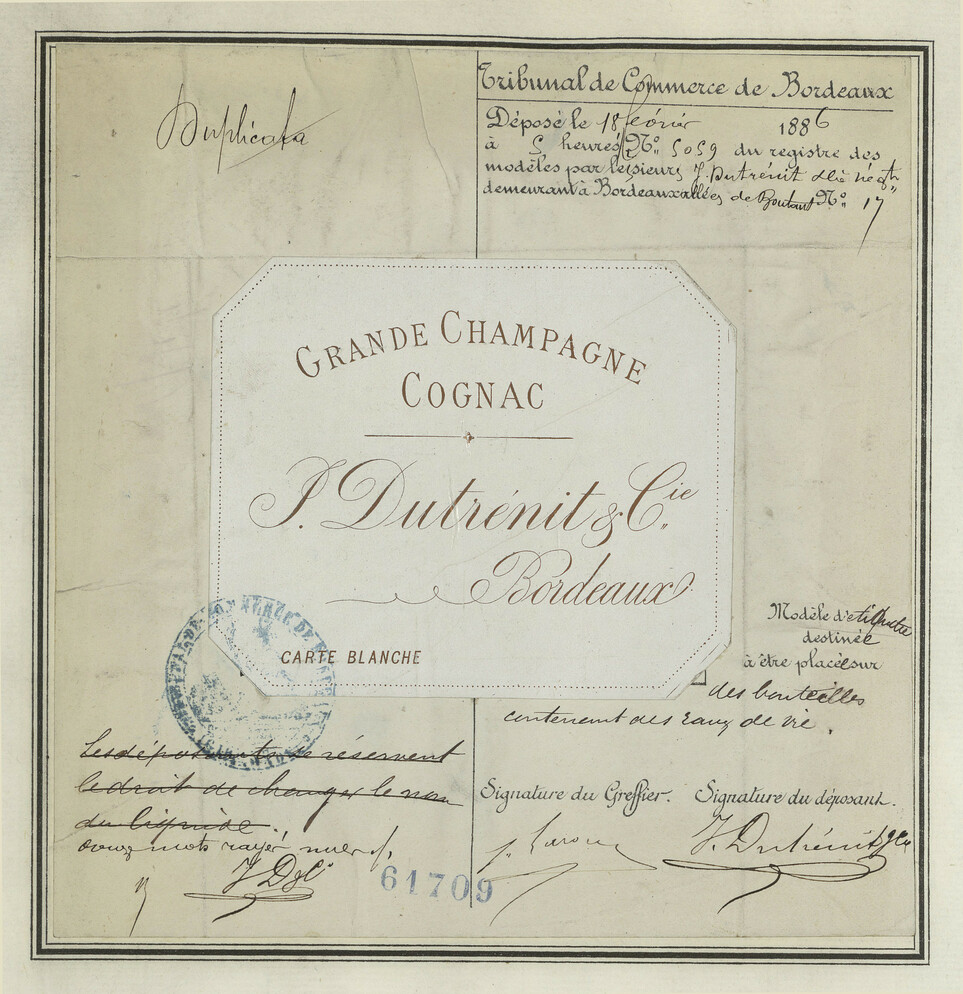 Duplicata
Tribunal de Commerce de Bordeaux
Déposé le 18 février 1886
à 5 heures, N° 5059 du registre des
modèles par les sieurs J. Dutrénit & Cie négts
demeurant à Bordeaux allées de Boutaut N° 17
GRANDE CHAMPAGNE
COGNAC
J. Dutrénit & Cie
Bordeaux
CARTE BLANCHE
Modèle d'étiquette
destinée
à être placée sur
des bouteilles
contenant des eaux de vie.
Les déposants se réservent
le droit de changer le nom
du liquide.
onze mots rayés nuls
J D & Cie
Signature du Greffier. Signature du déposant.
J. Dutrénit & Cie
61709